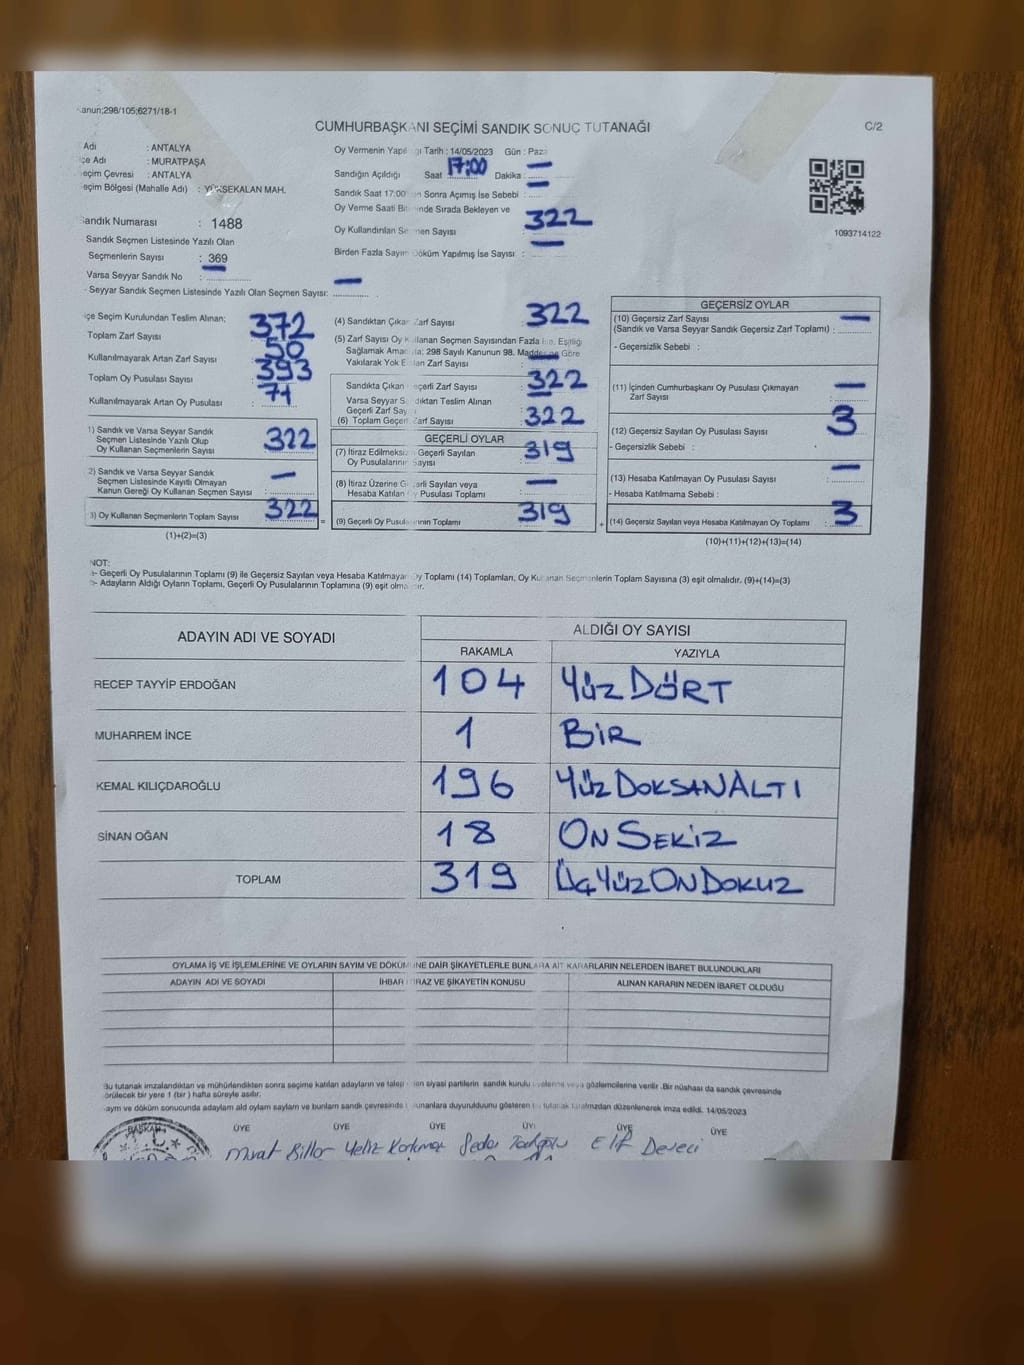 anun;298/105;6271/18-1
CUMHURBAŞKANI SEÇİMİ SANDIK SONUÇ TUTANAĞI
C/2
Adı : ANTALYA
çe Adı : MURATPAŞA
eçim Çevresi : ANTALYA
eçim Bölgesi (Mahalle Adı) : YÜKSEKALAN MAH.
Sandık Numarası : 1488
Sandık Seçmen Listesinde Yazılı Olan
Seçmenlerin Sayısı : 369
Varsa Seyyar Sandık No : —
- Seyyar Sandık Seçmen Listesinde Yazılı Olan Seçmen Sayısı: —
Oy Vermenin Yapı ğı Tarih : 14/05/2023 Gün : Paza
Sandığın Açıldığı Saat 17:00 Dakika : —
Sandık Saat 17:00' n Sonra Açımış İse Sebebi : —
Oy Verme Saati Bi nde Sırada Bekleyen ve
Oy Kullandırılan Se men Sayısı : 322
Birden Fazla Sayım Döküm Yapılmış İse Sayısı : —
1093714122
çe Seçim Kurulundan Teslim Alınan;
Toplam Zarf Sayısı 372
Kullanılmayarak Artan Zarf Sayısı 50
Toplam Oy Pusulası Sayısı 393
Kullanılmayarak Artan Oy Pusulası 71
1) Sandık ve Varsa Seyyar Sandık
Seçmen Listesinde Yazılı Olup
Oy Kullanan Seçmenlerin Sayısı 322
2) Sandık ve Varsa Seyyar Sandık
Seçmen Listesinde Kayıtlı Olmayan
Kanun Gereği Oy Kullanan Seçmen Sayısı —
3) Oy Kullanan Seçmenlerin Toplam Sayısı 322 =
(1)+(2)=(3)
(4) Sandıktan Çıkan Zarf Sayısı : 322
(5) Zarf Sayısı Oy Kullanan Seçmen Sayısından Fazla İse, Eşitliği
Sağlamak Amacıyla; 298 Sayılı Kanunun 98. Maddesine Göre
Yakılarak Yok E len Zarf Sayısı : —
Sandıkta Çıkan eçerli Zarf Sayısı : 322
Varsa Seyyar S dıktan Teslim Alınan
Geçerli Zarf Say : —
(6) Toplam Geçer Zarf Sayısı : 322
GEÇERLİ OYLAR
(7) İtiraz Edilmeksiz Geçerli Sayılan
Oy Pusulalarının Sayısı 319
(8) İtiraz Üzerine G erli Sayılan veya
Hesaba Katılan Oy Pusulası Toplamı —
(9) Geçerli Oy Pusulalarının Toplamı 319 +
GEÇERSİZ OYLAR
(10) Geçersiz Zarf Sayısı —
(Sandık ve Varsa Seyyar Sandık Geçersiz Zarf Toplamı) :
- Geçersizlik Sebebi :
(11) İçinden Cumhurbaşkanı Oy Pusulası Çıkmayan
Zarf Sayısı : —
(12) Geçersiz Sayılan Oy Pusulası Sayısı : 3
- Geçersizlik Sebebi :
(13) Hesaba Katılmayan Oy Pusulası Sayısı : —
- Hesaba Katılmama Sebebi :
(14) Geçersiz Sayılan veya Hesaba Katılmayan Oy Toplamı : 3
(10)+(11)+(12)+(13)=(14)
NOT:
a- Geçerli Oy Pusulalarının Toplamı (9) ile Geçersiz Sayılan veya Hesaba Katılmayan Oy Toplamı (14) Toplamları, Oy Kullanan Seçmenlerin Toplam Sayısına (3) eşit olmalıdır. (9)+(14)=(3)
b- Adayların Aldığı Oyların Toplamı, Geçerli Oy Pusulalarının Toplamına (9) eşit olmalıdır.
ADAYIN ADI VE SOYADI ALDIĞI OY SAYISI
RAKAMLA YAZIYLA
RECEP TAYYİP ERDOĞAN 104 YÜZ DÖRT
MUHARREM İNCE 1 BİR
KEMAL KILIÇDAROĞLU 196 YÜZ DOKSAN ALTI
SİNAN OĞAN 18 ON SEKİZ
TOPLAM 319 ÜÇ YÜZ ON DOKUZ
OYLAMA İŞ VE İŞLEMLERİNE VE OYLARIN SAYIM VE DÖKÜMÜNE DAİR ŞİKAYETLERLE BUNLARA AİT KARARLARIN NELERDEN İBARET BULUNDUKLARI
ADAYIN ADI VE SOYADI İHBAR İTİRAZ VE ŞİKAYETİN KONUSU ALINAN KARARIN NEDEN İBARET OLDUĞU
Bu tutanak imzalandıktan ve mühürlendikten sonra seçime katılan adayların ve talep den siyasi partilerin sandık kurulu üyelerine veya gözlemcilerine verilir .Bir nüshası da sandık çevresinde
örülecek bir yere 1 (bir ) hafta süreyle asılır.
ayım ve döküm sonucunda adayların ald oyların sayılarını ve bunların sandık çevresinde bulunanlara duyurulduunu gösteren bu tutanak tarafımızdan düzenlenerek imza edildi. 14/05/2023
BAŞKAN ÜYE ÜYE ÜYE ÜYE ÜYE ÜYE
Murat Yeliz Korkmaz Seda Elif Deveci